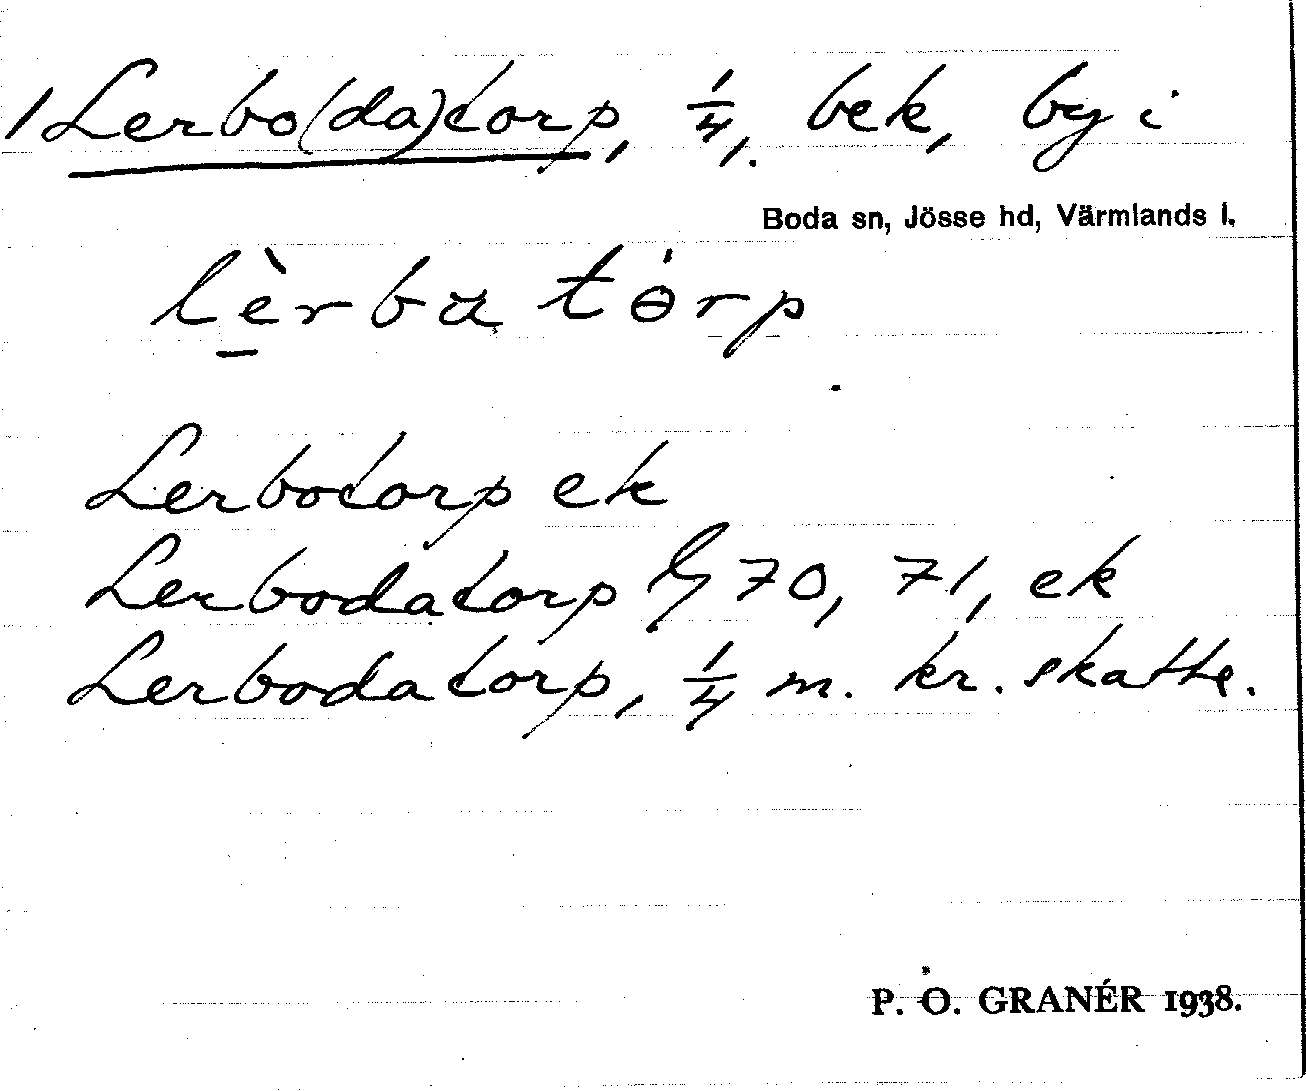 1 Lerbo(da)torp, 1/4, bek, by i
Boda sn, Jösse hd, Värmlands l.
lèrba tɵ́rp
Lerbotorp ek
Lerbodatorp G 70, 71, ek
Lerbodatorp, 1/4 m. kr. skatte.
P. O. GRANÉR 1938.